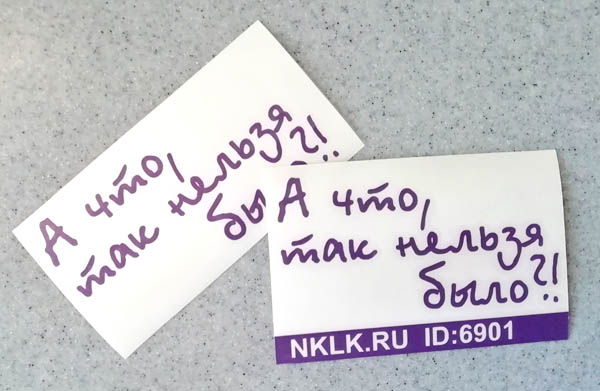 А что,
так нельзя
бы ..?!
А что,
так нельзя
было?!
NKLK.RU ID:6901